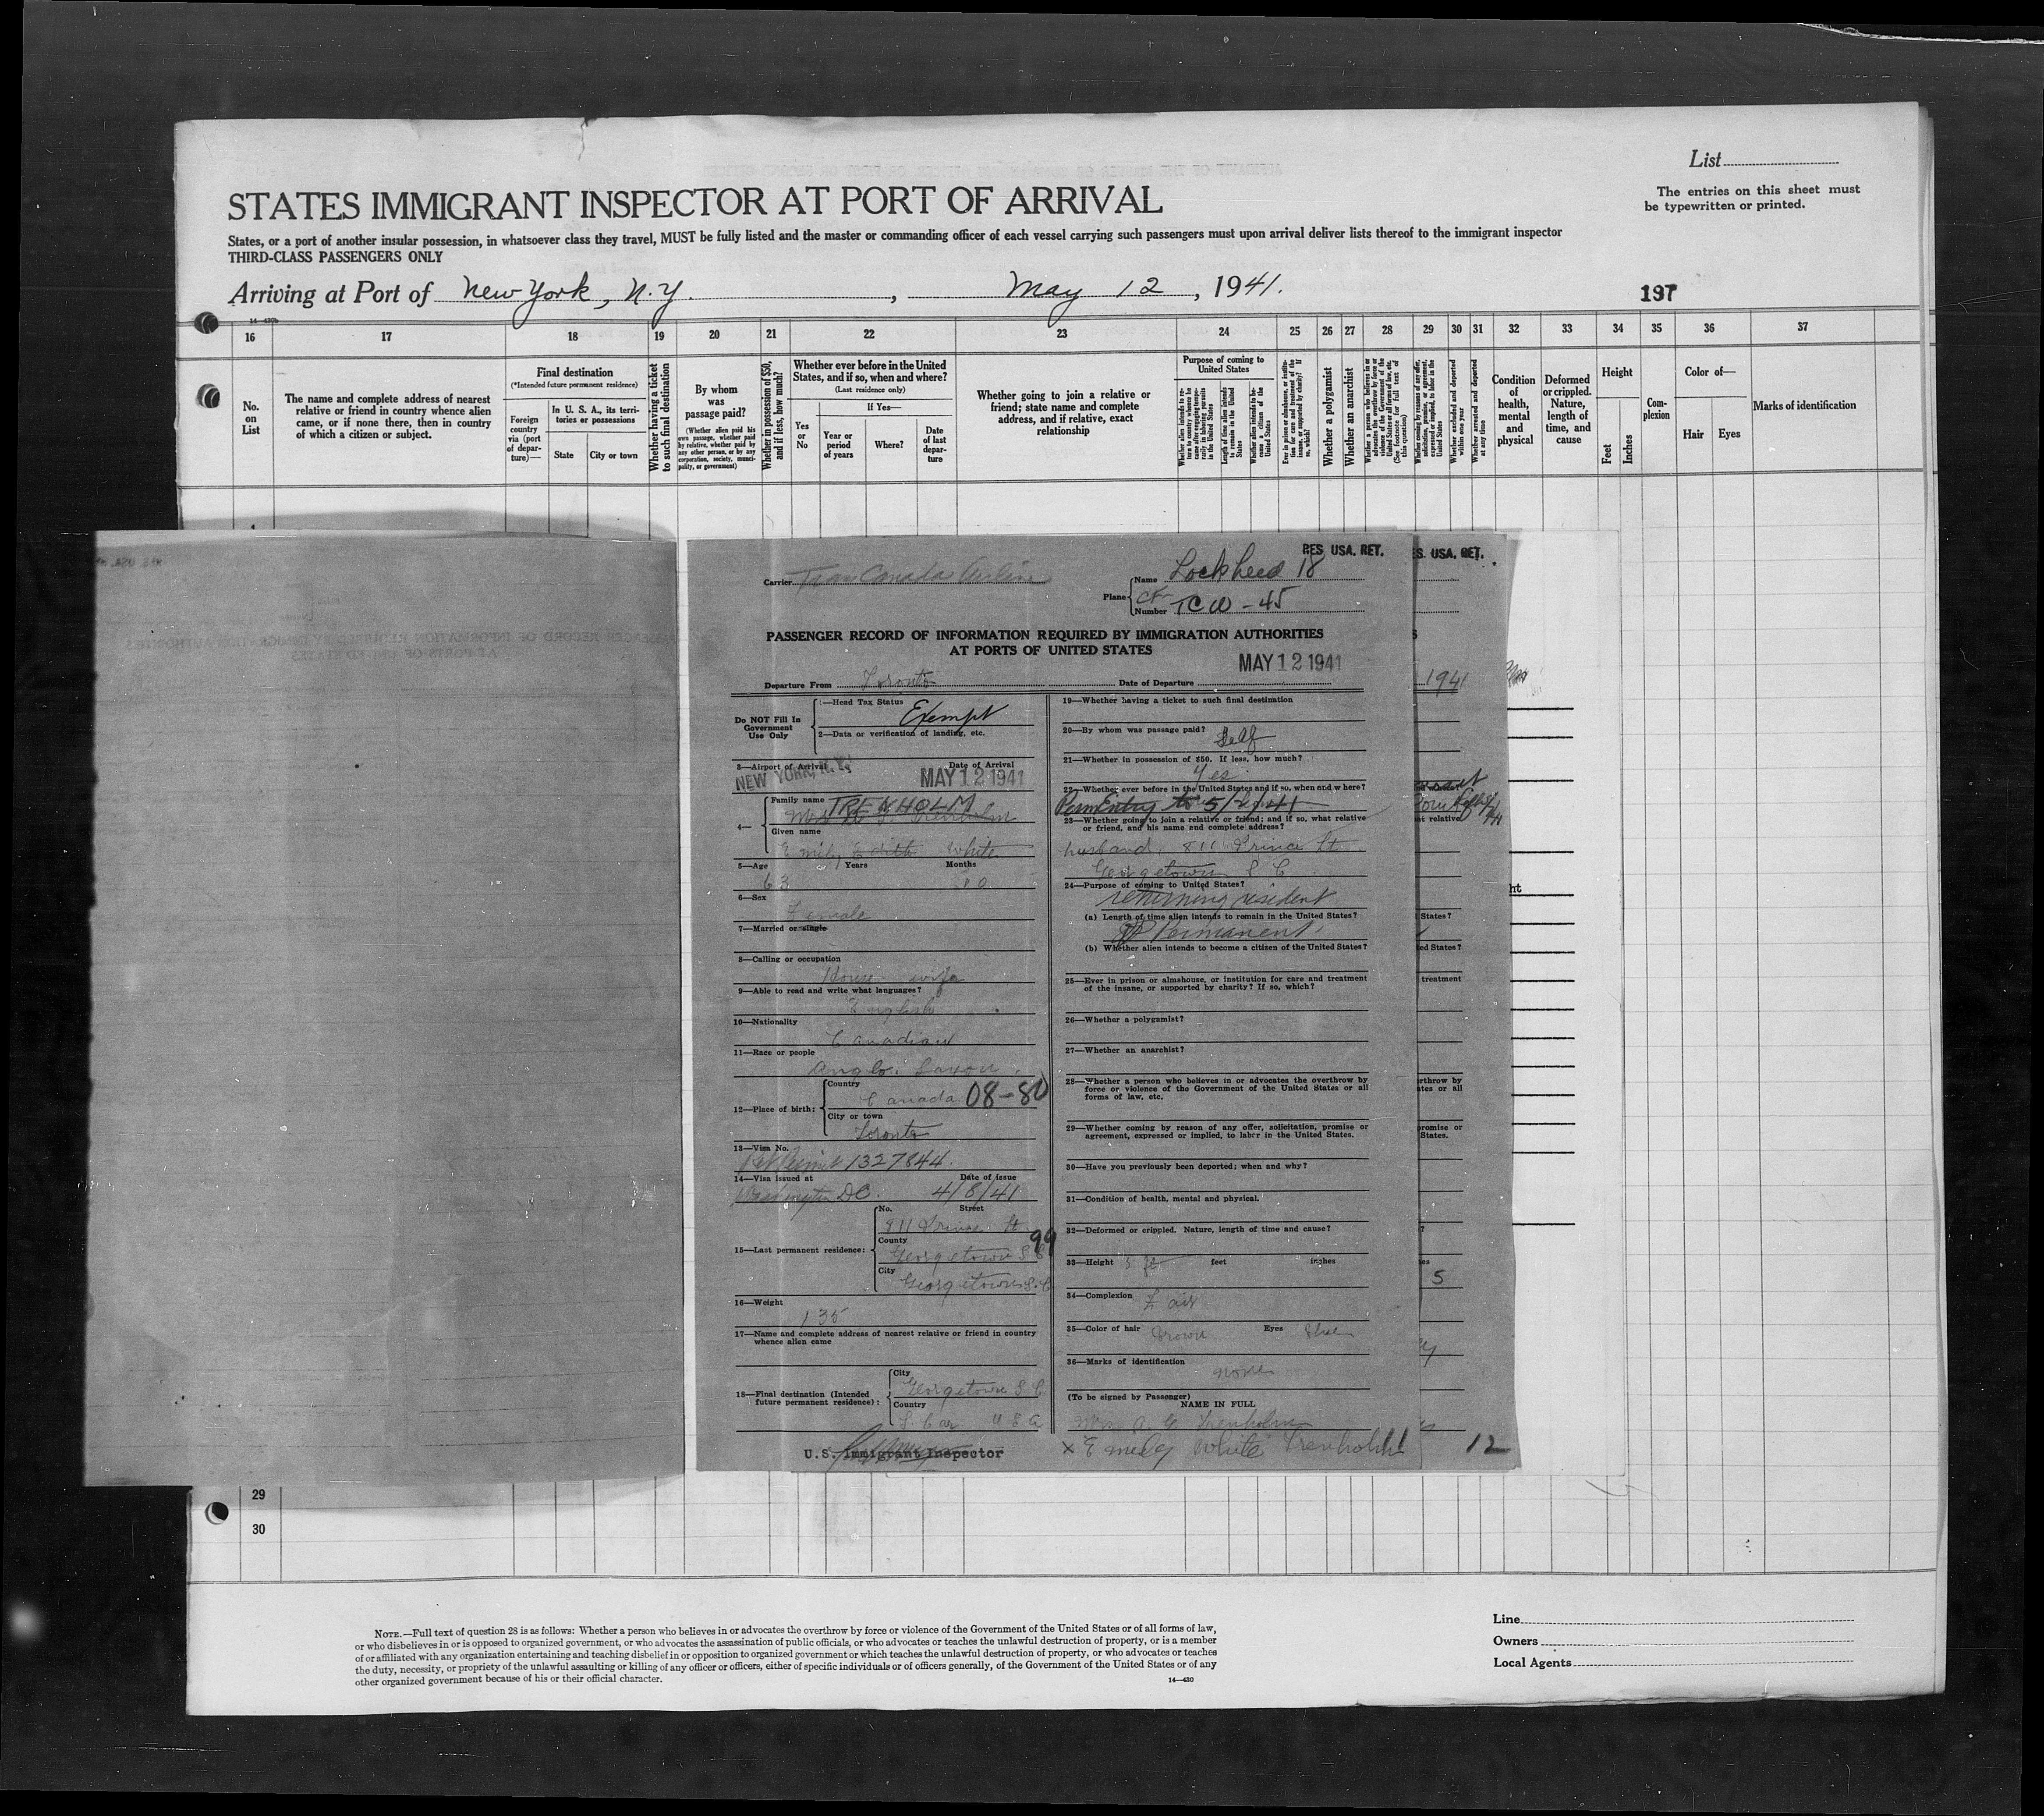 List
The entries on this sheet must
be typewritten or printed.
STATES IMMIGRANT INSPECTOR AT PORT OF ARRIVAL
States, or a port of another insular possession, in whatsoever class they travel, MUST be fully listed and the master or commanding officer of each vessel carrying such passengers must upon arrival deliver lists thereof to the immigrant inspector
THIRD-CLASS PASSENGERS ONLY
Arriving at Port of New York, N.Y. , May 12, 1941.
197
16 17 18 19 20 21 22 23 24 25 26 27 28 29 30 31 32 33 34 35 36 37
No. on List
The name and complete address of nearest
relative or friend in country whence alien
came, or if none there, then in country
of which a citizen or subject.
Final destination
(*Intended future permanent residence)
Foreign country via (port of departure)—
In U. S. A., its territories or possessions
State
City or town
Whether having a ticket to such final destination
By whom was passage paid?
(Whether alien paid his own passage, whether paid by relative, whether paid by any other person, or by any corporation, society, municipality, or government)
Whether in possession of $50, and if less, how much?
Whether ever before in the United
States, and if so, when and where?
(Last residence only)
Yes or No
If Yes—
Year or period of years
Where?
Date of last departure
Whether going to join a relative or
friend; state name and complete
address, and if relative, exact
relationship
Purpose of coming to United States
Whether a polygamist
Whether an anarchist
Condition of health, mental and physical
Deformed or crippled. Nature, length of time, and cause
Height
Feet
Inches
Complexion
Color of—
Hair
Eyes
Marks of identification
RES. USA. RET.
S. USA. RET.
Carrier Trans Canada Airline
Plane
Name Lockheed 18
Number CF-TCW-45
PASSENGER RECORD OF INFORMATION REQUIRED BY IMMIGRATION AUTHORITIES
AT PORTS OF UNITED STATES
MAY 12 1941
Departure From Toronto Date of Departure
Do NOT Fill In
Government
Use Only
1—Head Tax Status
Exempt
2—Data or verification of landing, etc.
3—Airport of Arrival Date of Arrival
NEW YORK, N.Y. MAY 12 1941
4—
Family name TRENHOLM
Given name
Emily Edith White
5—Age Years Months
63 10
6—Sex
Female
7—Married or single
8—Calling or occupation
House-wife
9—Able to read and write what languages?
English
10—Nationality
Canadian
11—Race or people
Anglo. Saxon.
12—Place of birth:
Country
Canada 08-80
City or town
Toronto
13—Visa No.
Permit 1327844.
14—Visa issued at Date of issue
Washington DC. 4/8/41
15—Last permanent residence:
No. Street
811 Prince St.
County 99
Georgetown S C
City
Georgetown S. C
16—Weight
135
17—Name and complete address of nearest relative or friend in country
whence alien came
18—Final destination (Intended
future permanent residence):
City
Georgetown S C
Country
S. Car U S A
U.S. Immigrant Inspector
19—Whether having a ticket to such final destination
20—By whom was passage paid?
Self
21—Whether in possession of $50. If less, how much?
Yes
22—Whether ever before in the United States and if so, when and where?
Perm Entry 5/2/41
23—Whether going to join a relative or friend; and if so, what relative
or friend, and his name and complete address?
husband, 811 Prince St.
Georgetown S C
24—Purpose of coming to United States?
returning resident
(a) Length of time alien intends to remain in the United States?
Permanent
(b) Whether alien intends to become a citizen of the United States?
25—Ever in prison or almshouse, or institution for care and treatment
of the insane, or supported by charity? If so, which?
26—Whether a polygamist?
27—Whether an anarchist?
28—Whether a person who believes in or advocates the overthrow by
force or violence of the Government of the United States or all
forms of law, etc.
29—Whether coming by reason of any offer, solicitation, promise or
agreement, expressed or implied, to labor in the United States.
30—Have you previously been deported; when and why?
31—Condition of health, mental and physical.
32—Deformed or crippled. Nature, length of time and cause?
33—Height 5 ft feet inches
34—Complexion
Fair
35—Color of hair Brown Eyes Blue
36—Marks of identification
none
(To be signed by Passenger)
NAME IN FULL
Mrs A G Trenholm
x Emily White Trenholm 11
12
1941
at relative
States?
ed States?
treatment
rthrow by
ates or all
promise or
States.
5
29
30
NOTE.—Full text of question 28 is as follows: Whether a person who believes in or advocates the overthrow by force or violence of the Government of the United States or of all forms of law,
or who disbelieves in or is opposed to organized government, or who advocates the assassination of public officials, or who advocates or teaches the unlawful destruction of property, or is a member
of or affiliated with any organization entertaining and teaching disbelief in or opposition to organized government or which teaches the unlawful destruction of property, or who advocates or teaches
the duty, necessity, or propriety of the unlawful assaulting or killing of any officer or officers, either of specific individuals or of officers generally, of the Government of the United States or of any
other organized government because of his or their official character.
14—430
Line
Owners
Local Agents